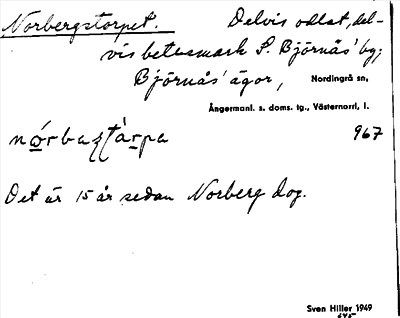 Norbergstorpet. Delvis odlat, del-
vis betesmark S. Björnås' by;
Björnås' ägor, Nordingrå sn,
Ångermanl. s. doms. tg., Västernorrl. l.
967
Det är 15 år sedan Norberg dog.
Sven Hiller 1949